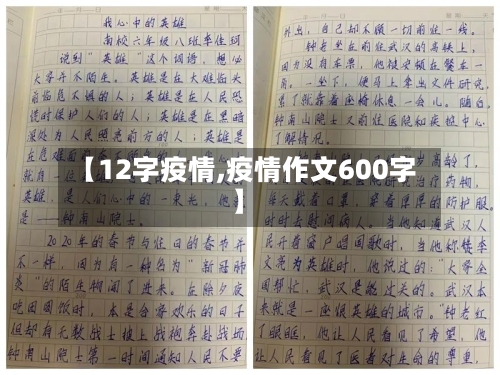 我心中的英雄
南校六年级八班李佳珂
说到“英雄”这个词语，想必
大家并不陌生。英雄是在大难临头
前临危不惧的人；英雄是在人民恐
慌时保护人们的人；英雄是在黑暗
深处为人民照亮前方的人；英雄是
在危难
就自一
英雄，是人们心中的一束光，他
是——钟南山院士。
2020年的春节与往日的春节并
不一样，因为有一种名为“新冠肺
炎”的陌生物闯了进来。在除夕夜
吃团圆饭时，本是合家欢乐的日子
但却有无数战士披上战袍奔赴战场，
钟南山院士第一时间通知人民不要
外出，自己却不顾一切前往一线。
钟老坐在前往武汉的高铁上，
因为没有车票，他被安顿在餐车一
角。一坐下，便马上拿出文件研究，
累了就靠着座椅休息一会儿。随后，
钟南山院士又前往医院和疾控中心
了解情况。
高龄了，
疗药物，
每天戴着口罩，穿着厚厚的防护服，
时时去慰问病人。当他知道武汉人
民开着窗户唱国歌时，当他称赞李
文亮为英雄时，他说过的：“大家全
国帮忙，武汉是能过关的。武汉本
来就是一座很英雄的城市。”钟老红
了眼眶，他让人民看见了希望，他
让人民看见了医者对生命的尊重，
【12字疫情,疫情作文600字
】